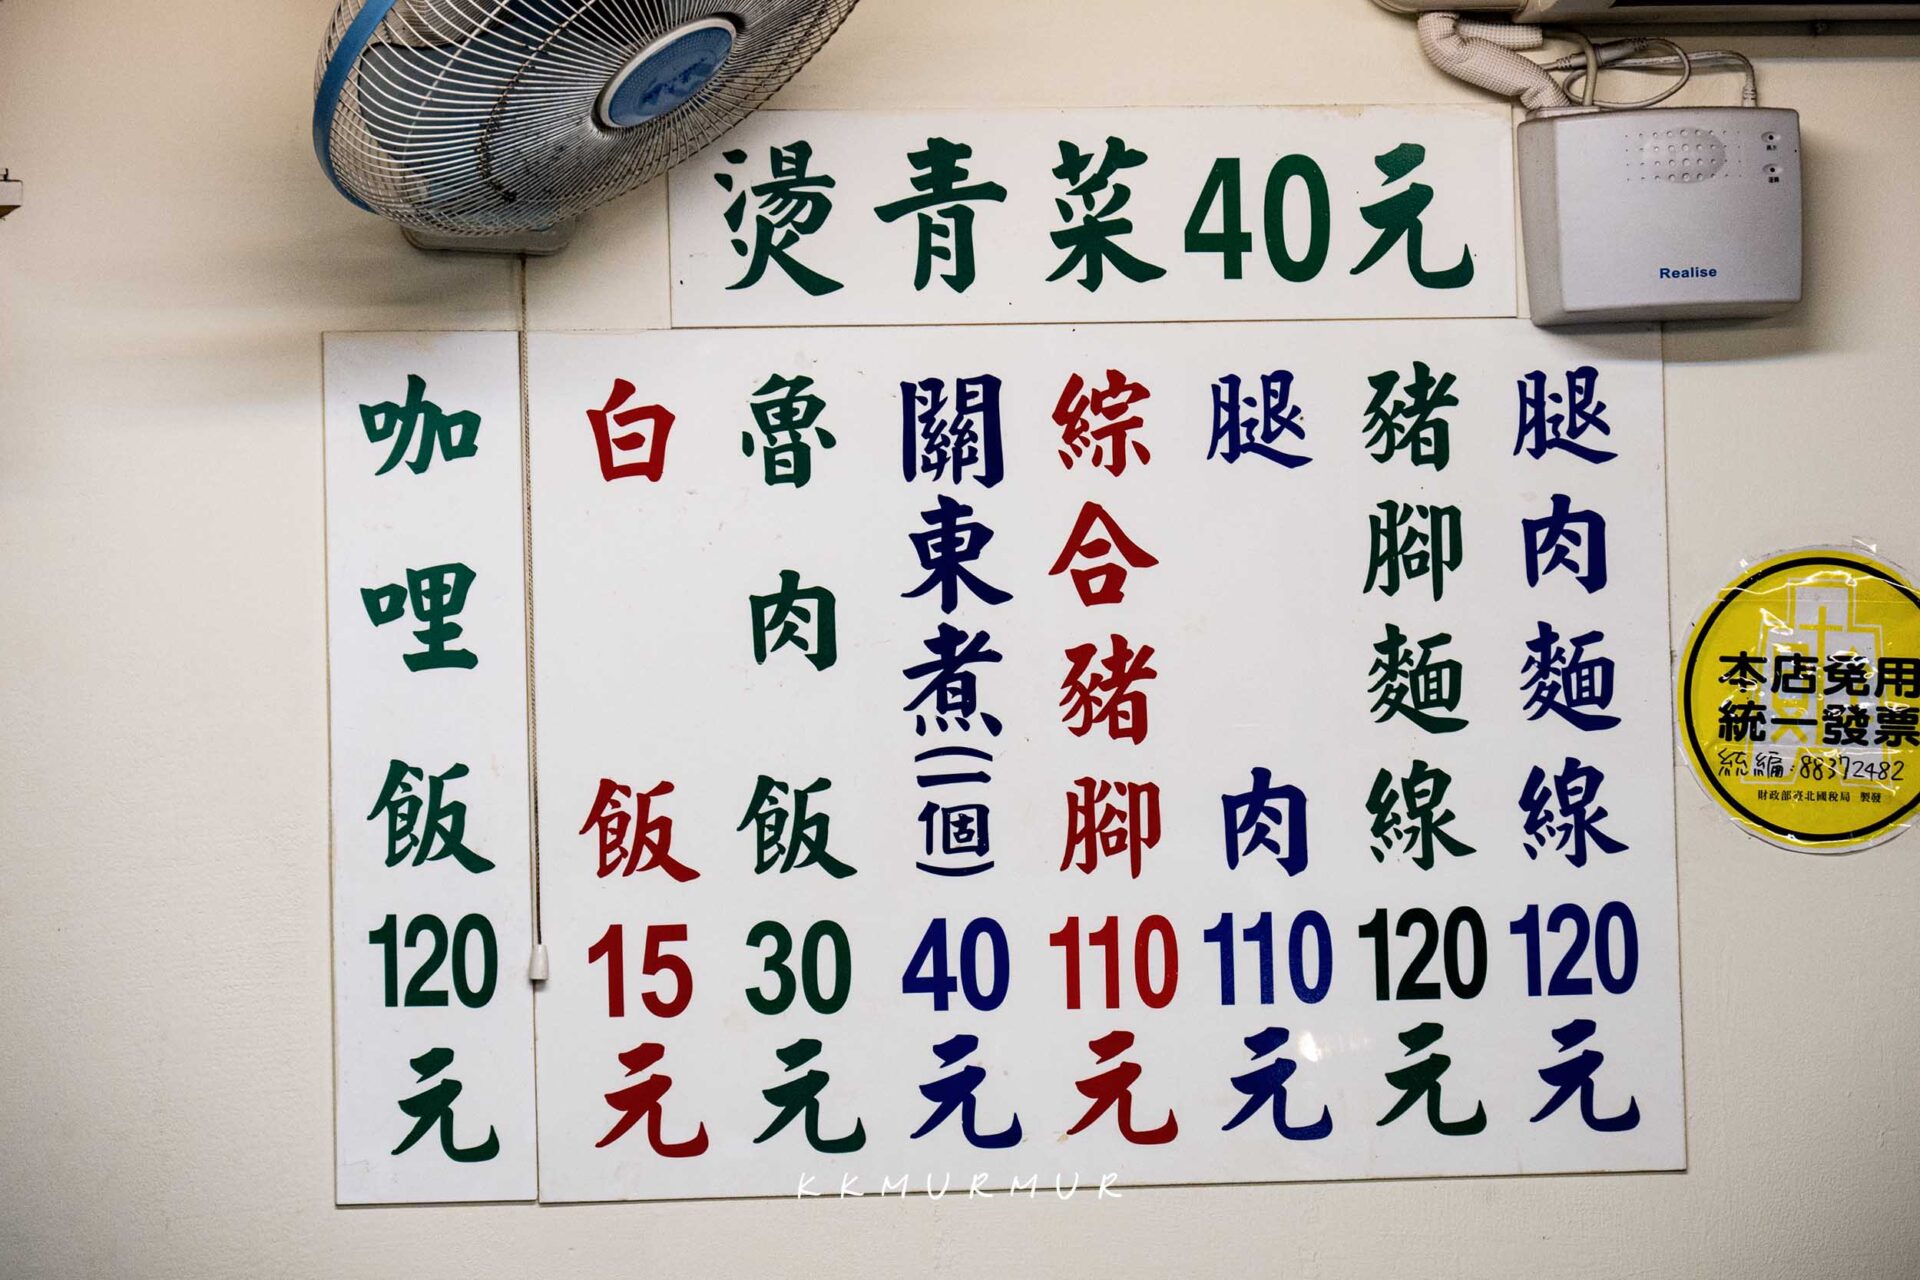 燙青菜40元
腿肉麵線120元
豬腳麵線120元
腿肉110元
綜合豬腳110元
關東煮(一個)40元
魯肉飯30元
白飯15元
咖哩飯120元
Realise
本店免用
統一發票
統編:88372482
財政部臺北國稅局 製發
KKMURMUR